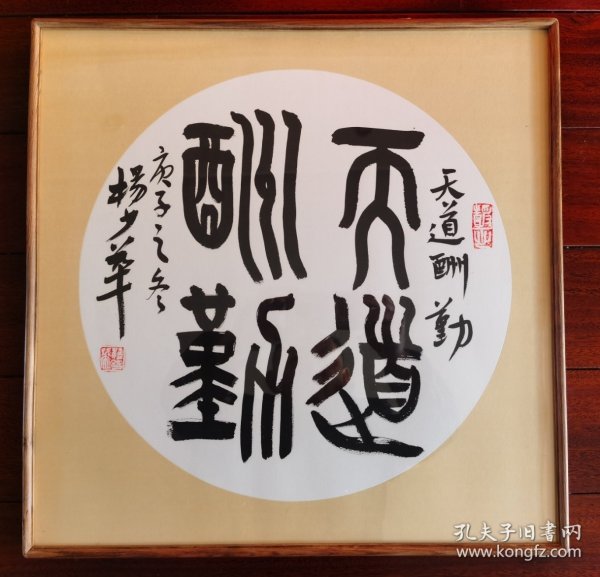 天道酬勤
天道
酬勤
庚子之冬
楊少華
孔夫子旧书网
www.kongfz.com